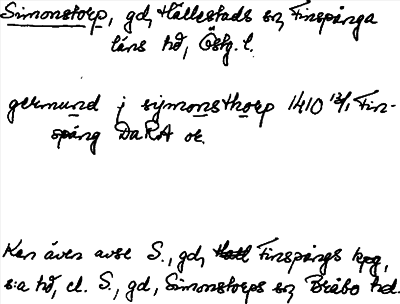 Simonstorp, gd, Hällestads sn, Finspånga
läns hd, Östg. l.
germund j symonsthorp 1410 13/1 Fin-
spång DaRA or.
Kan även avse S., gd, Finspångs kpg,
s:a hd, el. S., gd, Simonstorps sn, Bråbo hd.